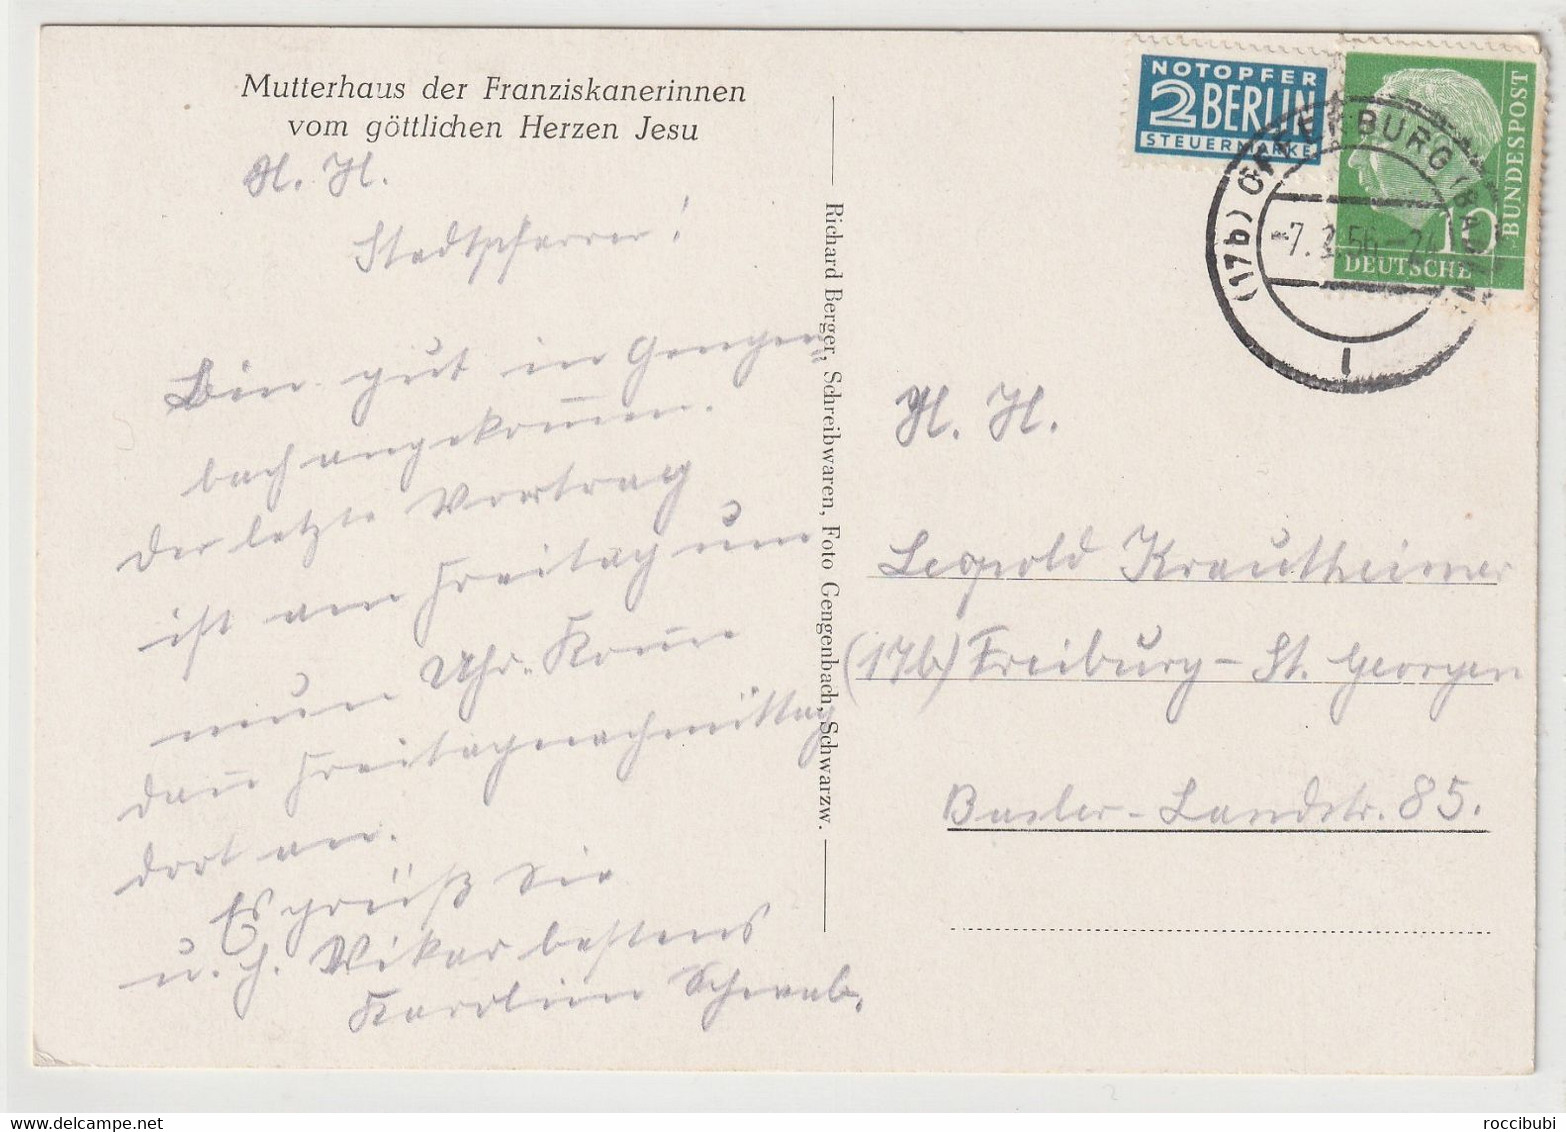 Mutterhaus der Franziskanerinnen
vom göttlichen Herzen Jesu
H. H.
Stadtpfarrer!
Bin gut in Gengen=
bach angekom̄en.
Der letzte Vortrag
ist am Freitag um
neun Uhr. Kom̄e
dan̄ Freitagnachmittag
dort an.
Es grüßt Sie
u. H. Vikar bestens
Karoline Schwab.
Richard Berger, Schreibwaren, Foto Gengenbach, Schwarzw.
NOTOPFER
2 BERLIN
STEUERMARKE
BUNDESPOST
10
DEUTSCHE
(17b) OFFENBURG (BADEN)
-7.56-24
1
H. H.
Leopold Krautheimer
(17b) Freiburg - St. Georgen
Basler-Landstr. 85.
roccibubi